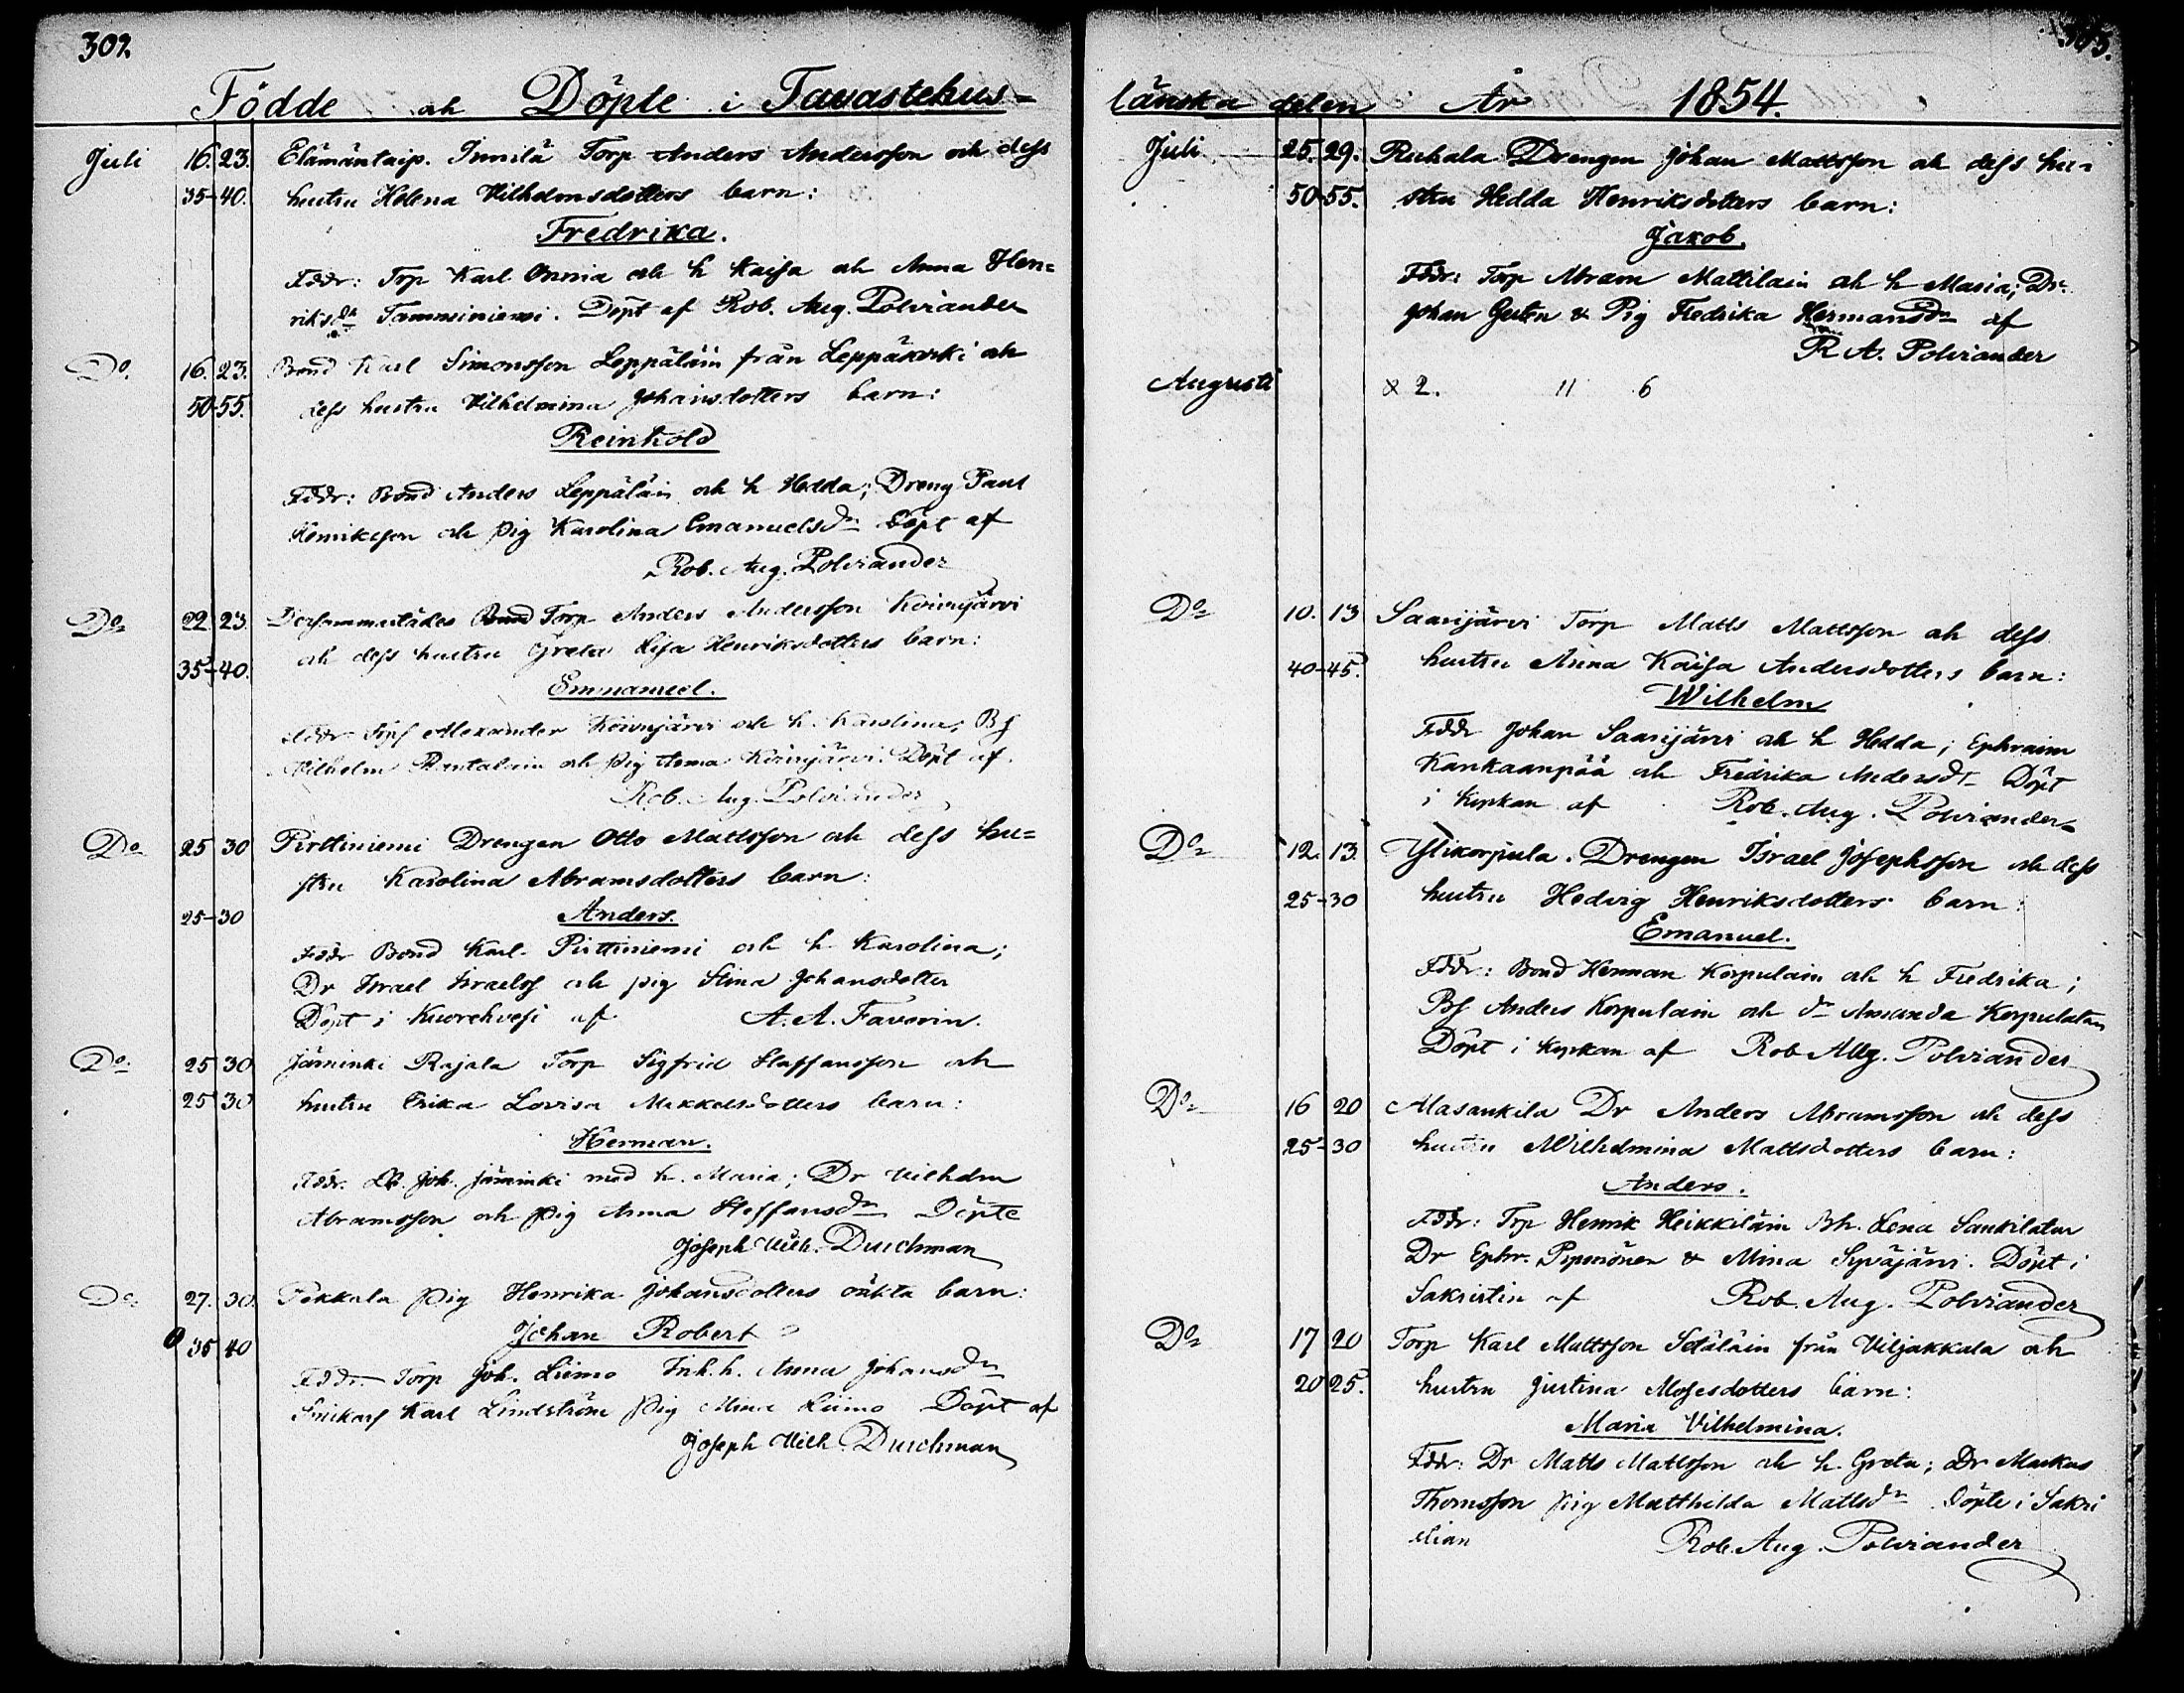 302
Födde och Döpte i Tavastehus-
Juli 16. 23. Torp Anders Andersson och dess
35-40. hustru Helena Vilhelmsdotters barn:
Fredrika.
Fddr: Torp Karl Onnia och h Kaisa och Anna Hen=
riksdr Tamminiemi. Döpt af Rob. Aug. Polviander
Do. 16. 23. Bond Karl Simonsson Leppäläin från Leppäkoski och
50-55. dess hustru Vilhelmina Johansdotters barn:
Reinhold
Fddr: Bond Anders Leppäläin och h Hedda; Dreng Paul
Henriksson och pig Karolina Emanuelsdr Döpt af
Rob. Aug. Polviander
Do 22 23. Dersammastädes Torp Anders Andersson
35-40. och dess hustru Greta Lisa Henriksdotters barn:
Emmanuel.
Fddr Alexander och h. Karolina; Bs
Vilhelm och pig Anna Döpt af
Rob. Aug. Polviander
Do 25 30 Pirttiniemi Drengen Otto Mattsson och dess hu=
stru Karolina Abramsdotters barn:
25-30 Anders.
Fddr Bond Karl Pirttiniemi och h Karolina;
Dr Israel Israelss och pig Stina Johansdotter
Döpt i Kuorehvesi af A. A. Favorin.
Do 25 30 Jäminki Rajala Torp Sigfrid Staffansson och
25 30 hustru Erika Lovisa Mikkelsdotters barn:
Herman.
Fddr. Joh. Jäminki med h. Maria; Dr Vilhelm
Abramsson och pig Anna Staffansdr Döpte
Joseph Wilh. Duchman
Do: 27. 30. Pekkala pig Henrika Johansdotters oäkta barn:
35 40 Johan Robert
Fddr Torp Joh. Liimo Inh. h. Anna Johansdr
Karl Lindström pig Mina Liimo Döpt af
Joseph Wilh. Duchman
länska delen År 1854.
Juli 25. 29. Ruhala Drengen Johan Mattsson och dess hu-
50-55. stru Hedda Henriksdotters barn:
Jakob.
Fddr: Torp Abram Mattilain och h Maria; Dr
Johan & Pig Fredrika Hermansdr af
R A. Polviander
Augusti & 2. 11 6
Do 10. 13 Saarijärvi Torp Matts Mattsson och dess
40-45. hustru Anna Kaisa Andersdotters barn:
Wilhelm
Fddr Johan Saarijärvi och h Hedda; Ephraim
Kankaanpää och Fredrika Andersdr Döpt
i kyrkan af Rob. Aug. Polviander
Do 12. 13. Ylikorpula. Drengen Israel Josephsson och dess
25-30 hustru Hedvig Henriksdotters barn:
Emanuel.
Fddr: Bond Herman Korpulain och h Fredrika;
Bs Anders Korpulain och dr Amanda Korpulatar
Döpt i kyrkan af Rob Aug. Polviander
Do 16 20 Masankila Dr Anders Abramsson och dess
25-30 hustru Wilhelmina Mattsdotters barn:
Anders.
Fddr: Torp Henrik Heikkiläin Lena Sankilatar
Dr Ephr. & Mina Syväjärvi. Döpt i
Sakristin af Rob. Aug. Polviander
Do 17 20 Torp Karl Mattsson Setäläin från Viljakkala och
20 25. hustru Justina Mosesdotters barn:
Maria Vilhelmina.
Fddr: Dr Matts Mattsson och h. Greta; Dr Markus
Thomsson pig Matthilda Mattsdr Döpte i Sakri
stian Rob. Aug. Polviander